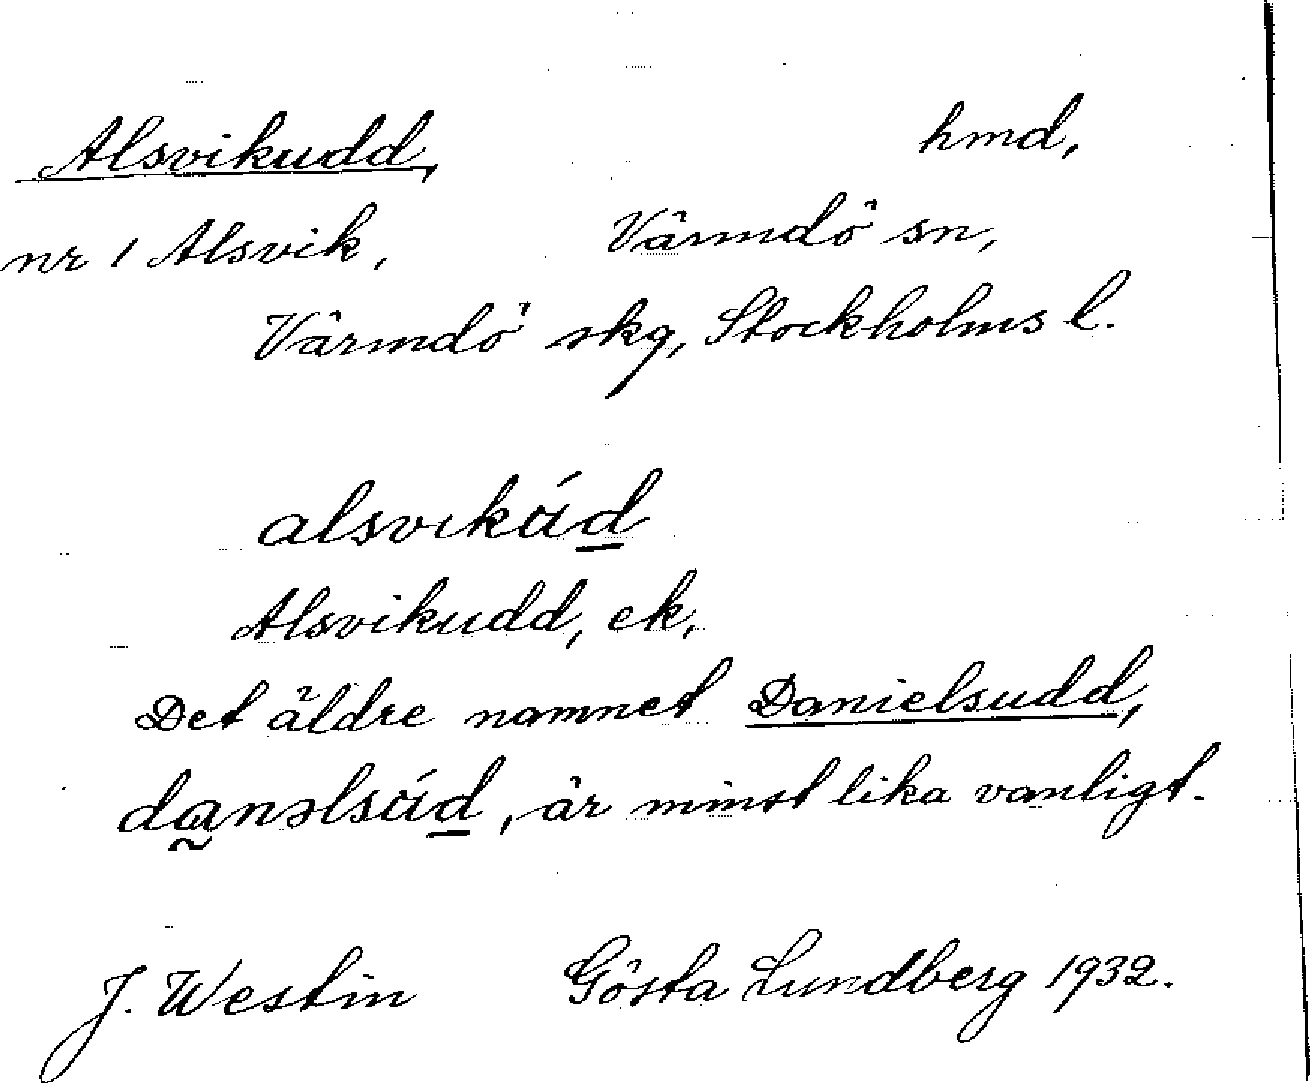 Alsvikudd, hmd,
nr 1 Alsvik, Värmdö sn,
Värmdö skg, Stockholms l.
alsvikúd
Alsvikudd, ek.
Det äldre namnet Danielsudd,
danəlsúd, är minst lika vanligt.
J. Westin Gösta Lundberg 1932.